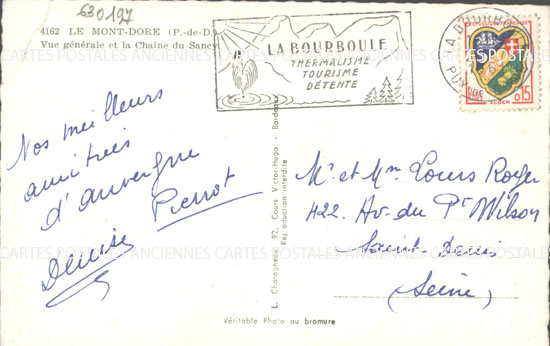 630197
4162 LE MONT-DORE (P.-de-D.)
Vue générale et la Chaîne du Sancy
LA BOURBOULE
THERMALISME
TOURISME
DÉTENTE
LA BOURBOULE
PUY
0,15
ALGER
Nos meilleurs
amitiés
d'auvergne
Denise Pierrot
L. Chatagneau, 92, Cours Victor-Hugo - Bordeaux
Reproduction interdite
Mr et Mme Louis Royer
422 Av. du Pt Wilson
Saint-Denis
(Seine)
Véritable Photo au bromure
CARTES POSTALES ANCIENNES CARTES POSTALES ANCIENNES CARTES POSTALES